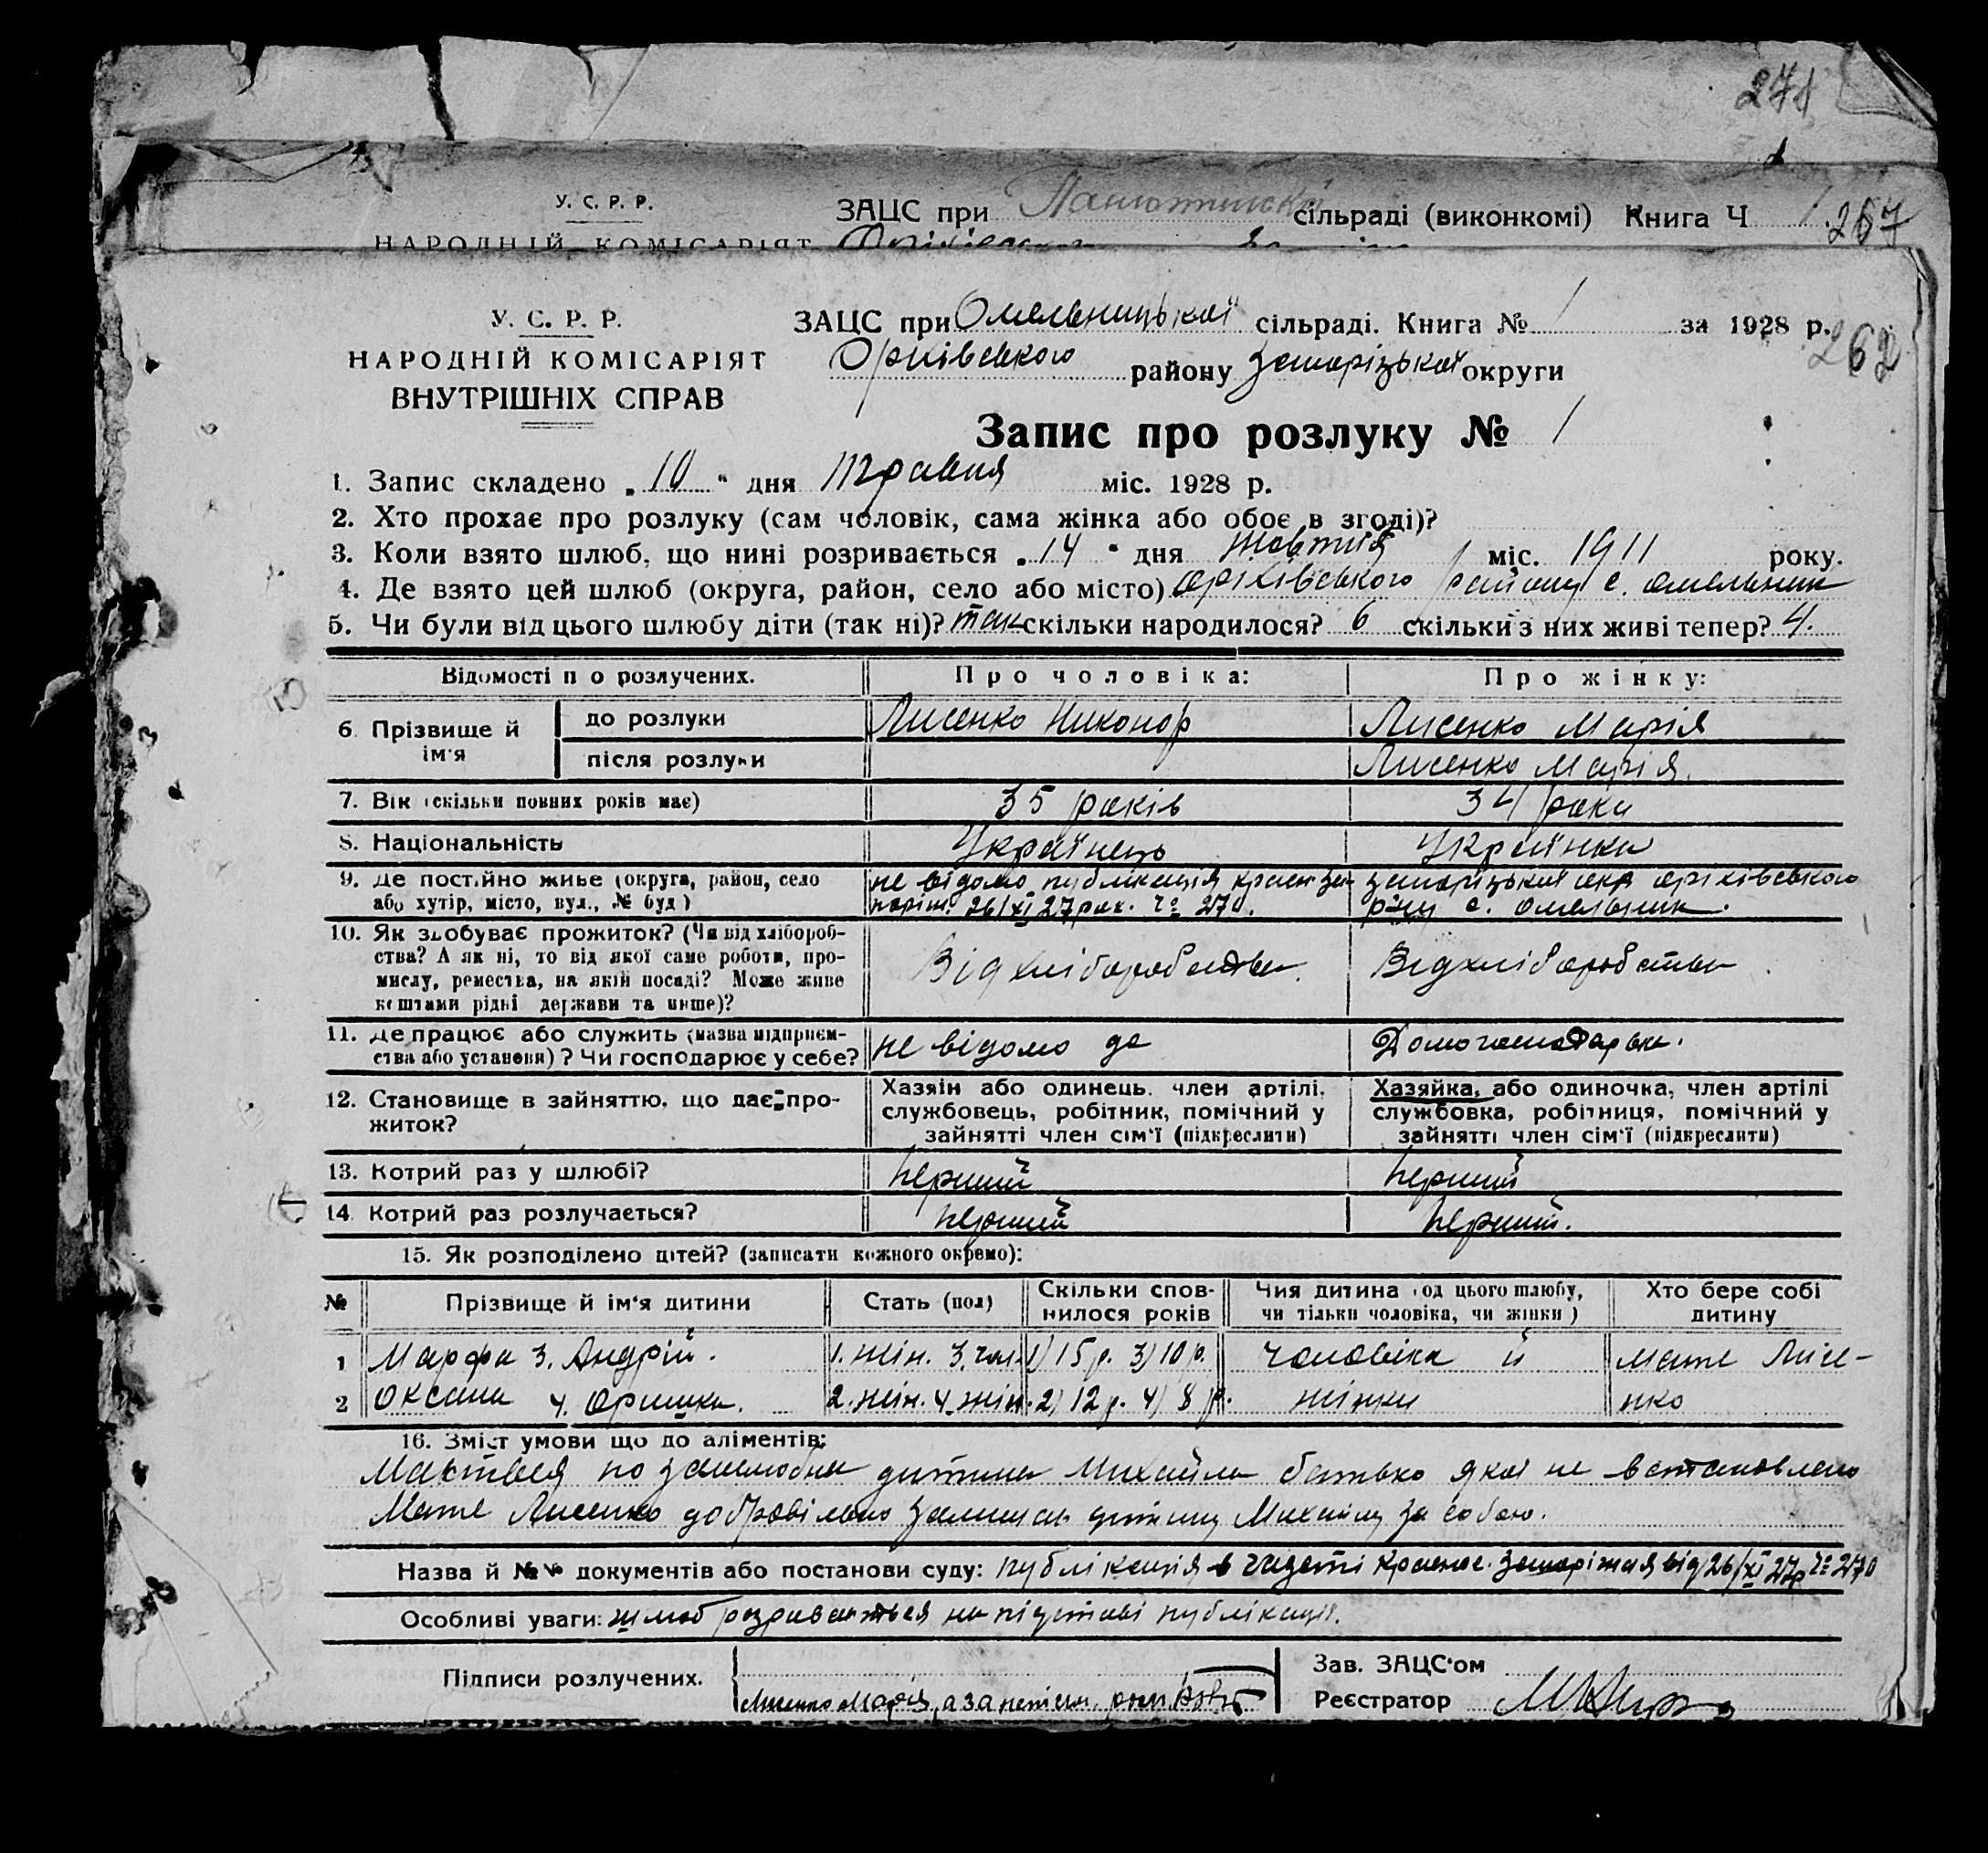 271
У. С. Р. Р.
ЗАЦС при сільраді (виконкомі) Книга Ч 1 267
НАРОДНІЙ КОМІСАРІЯТ
У. С. Р. Р.
ЗАЦС при Омельницької сільраді. Книга № 1 за 1928 р.
262
НАРОДНІЙ КОМІСАРІЯТ
Оріхівського району Запоріцької округи
ВНУТРІШНІХ СПРАВ
Запис про розлуку № 1
1. Запис складено „10" дня травня міс. 1928 р.
2. Хто прохає про розлуку (сам чоловік, сама жінка або обоє в згоді)?
3. Коли взято шлюб, що нині розривається „14" дня жовтня міс. 1911 року.
4. Де взято цей шлюб (округа, район, село або місто) Оріхівського району с. Омельник
5. Чи були від цього шлюбу діти (так ні)? так скільки народилося? 6 скільки з них живі тепер? 4.
Відомості п о розлучених. Про чоловіка: Про жінку:
6. Прізвище й ім'я до розлуки Лисенко Никонор Лисенко Марія
після розлуки Лисенко Марія.
7. Вік (скільки повних років має) 35 років 34 роки
8. Національність Українець Українка
9. Де постійно живе (округа, район, село не відомо публікація красн. За- запоріцької окр оріхівського
або хутір, місто, вул., № буд) 26/XI 27 рок. № 270. р-ну с. Омельник.
10. Як здобуває прожиток? (Чи від хлібороб-
ства? А як ні, то від якої саме роботи, про- Від хліборобства. Від хліборобства
мислу, ремества, на якій посаді? Може живе
коштами рідні держави та инше)?
11. Де працює або служить (назва підприєм- не відомо де Домогосподарка.
ства або установи)? Чи господарює у себе?
12. Становище в зайняттю, що дає про- Хазяін або одинець, член артілі, Хазяйка, або одиночка, член артілі
житок? службовець, робітник, помічний у службовка, робітниця, помічний у
зайнятті член сім'ї (підкреслити) зайнятті член сім'ї (підкреслити)
13. Котрий раз у шлюбі? перший перший
14. Котрий раз розлучається? перший перший.
15. Як розподілено дітей? (записати кожного окремо):
№ Прізвище й ім'я дитини Стать (пол) Скільки спов- Чия дитина (од цього шлюбу, Хто бере собі
нилося років чи тільки чоловіка, чи жінки) дитину
1 Марфа 3. Андрій. 1. жін. 3. чол. 1) 15 р. 3) 10 р. чоловіка й мате Лисе-
2 Оксана 4. Оришка. 2. жін. 4. жін. 2) 12 р. 4) 8 р. жінки нко
16. Зміст умови що до аліментів:
дитина Михайла батько якої не встановлено
Мате Лисенко добровільно залишає дитину Михайлу за собою.
Назва й №№ документів або постанови суду: публікація в газеті Красное Запоріжжя від 26/XI 27 р № 270
Особливі уваги: шлюб розривається на підставі публікації.
Підписи розлучених. Зав. ЗАЦС'ом
Лисенко Марія, а за неписьм. Реєстратор